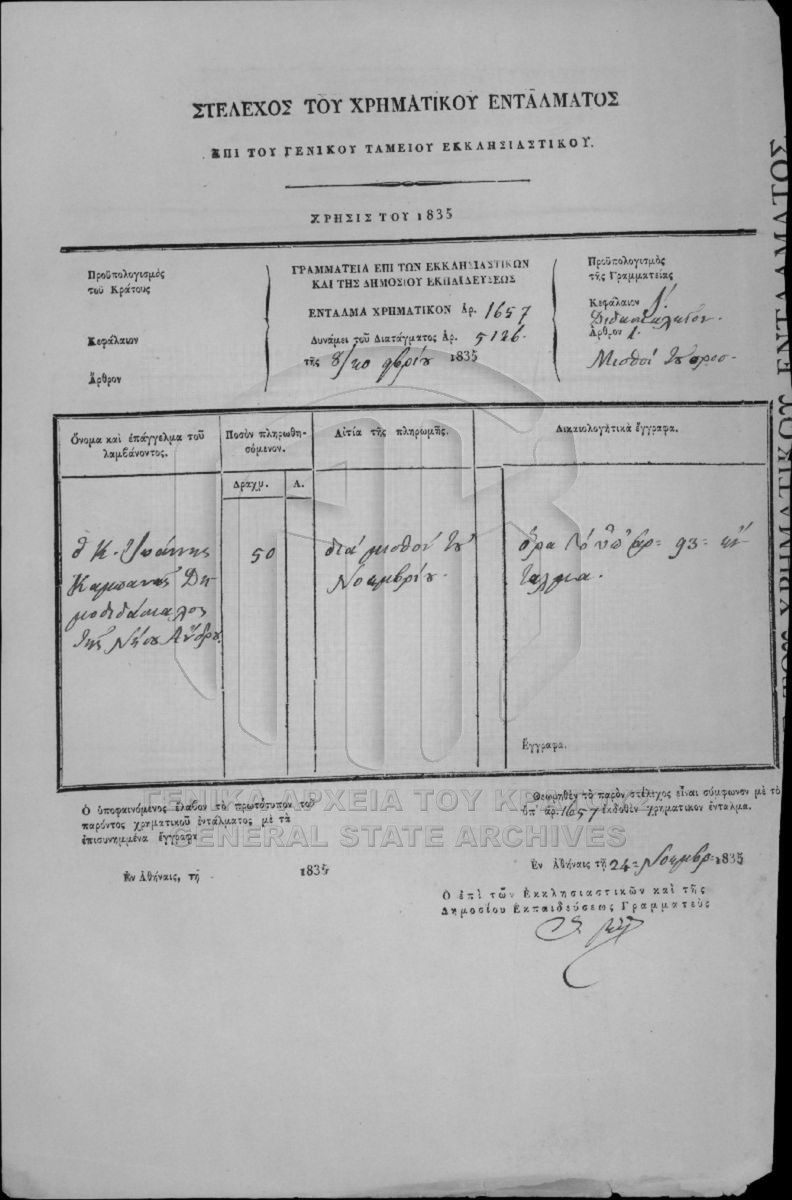 ΣΤΕΛΕΧΟΣ ΤΟΥ ΧΡΗΜΑΤΙΚΟΥ ΕΝΤΑΛΜΑΤΟΣ
ΕΠΙ ΤΟΥ ΓΕΝΙΚΟΥ ΤΑΜΕΙΟΥ ΕΚΚΛΗΣΙΑΣΤΙΚΟΥ.
ΧΡΗΣΙΣ ΤΟΥ 1835
Προϋπολογισμός
τοῦ Κράτους
Κεφάλαιον
Ἄρθρον
ΓΡΑΜΜΑΤΕΙΑ ΕΠΙ ΤΩΝ ΕΚΚΛΗΣΙΑΣΤΙΚΩΝ
ΚΑΙ ΤΗΣ ΔΗΜΟΣΙΟΥ ΕΚΠΑΙΔΕΥΣΕΩΣ
ΕΝΤΑΛΜΑ ΧΡΗΜΑΤΙΚΟΝ Ἀρ. 1657
Δυνάμει τοῦ Διατάγματος Ἀρ. 5126.
τῆς 8/20 9βρίου 1835
Προϋπολογισμὸς
τῆς Γραμματείας
Κεφάλαιον
Διδασκαλεῖον.
Ἄρθρον 1.
Μισθοὶ
Ὄνομα καὶ ἐπάγγελμα τοῦ
λαμβάνοντος.
Ποσὸν πληρωθη-
σόμενον.
Δραχμ. Λ.
Αἰτία τῆς πληρωμῆς.
Δικαιολογητικὰ ἔγγραφα.
ὁ Κ. Ἰωάννης
Καμπανᾶς Δη
μοδιδάσκαλος
τῆς Νήσου Ἄνδρου
50
διὰ μισθόν τοῦ
Νοεμβρίου.
ὅρα τὸ ὑπ' ἀρ= 93= ἔν
ταλμα.
Ἔγγραφα.
Ο ὑποφαινόμενος ἔλαβον τὸ πρωτότυπον τοῦ
παρόντος χρηματικοῦ ἐντάλματος μὲ τὰ
ἐπισυνημμένα ἔγγραφα
Ἐν Ἀθήναις, τῇ 1835
Θεωρηθὲν τὸ παρὸν στέλεχος εἶναι σύμφωνον μὲ τὸ
ὑπ' ἀρ. 1657 ἐκδοθὲν χρηματικὸν ἔνταλμα.
Ἐν Ἀθήναις τῇ 24 Νοεμβρ= 1835
Ο ἐπὶ τῶν Ἐκκλησιαστικῶν καὶ τῆς
Δημοσίου Εκπαιδεύσεως Γραμματεὺς
ΓΕΝΙΚΑ ΑΡΧΕΙΑ ΤΟΥ ΚΡΑΤΟΥΣ
GENERAL STATE ARCHIVES
ΤΟΥ ΧΡΗΜΑΤΙΚΟΥ ΕΝΤΑΛΜΑΤΟΣ